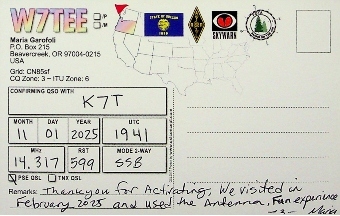 W7TEE /P
/M
Maria Garofoli
P.O. Box 215
Beavercreek, OR 97004-0215
USA
Grid: CN85sf
CQ Zone: 3 – ITU Zone: 6
STATE OF OREGON
1859
SKYWARN
CONFIRMING QSO WITH
K7T
MONTH DAY YEAR UTC
11 01 2025 1941
MHz RST MODE 2-WAY
14.317 599 SSB
PSE QSL TNX QSL
Remarks: Thank you for Activating, We visited in
February 2025 and used the Antenna, Fun experience
-3- Maria